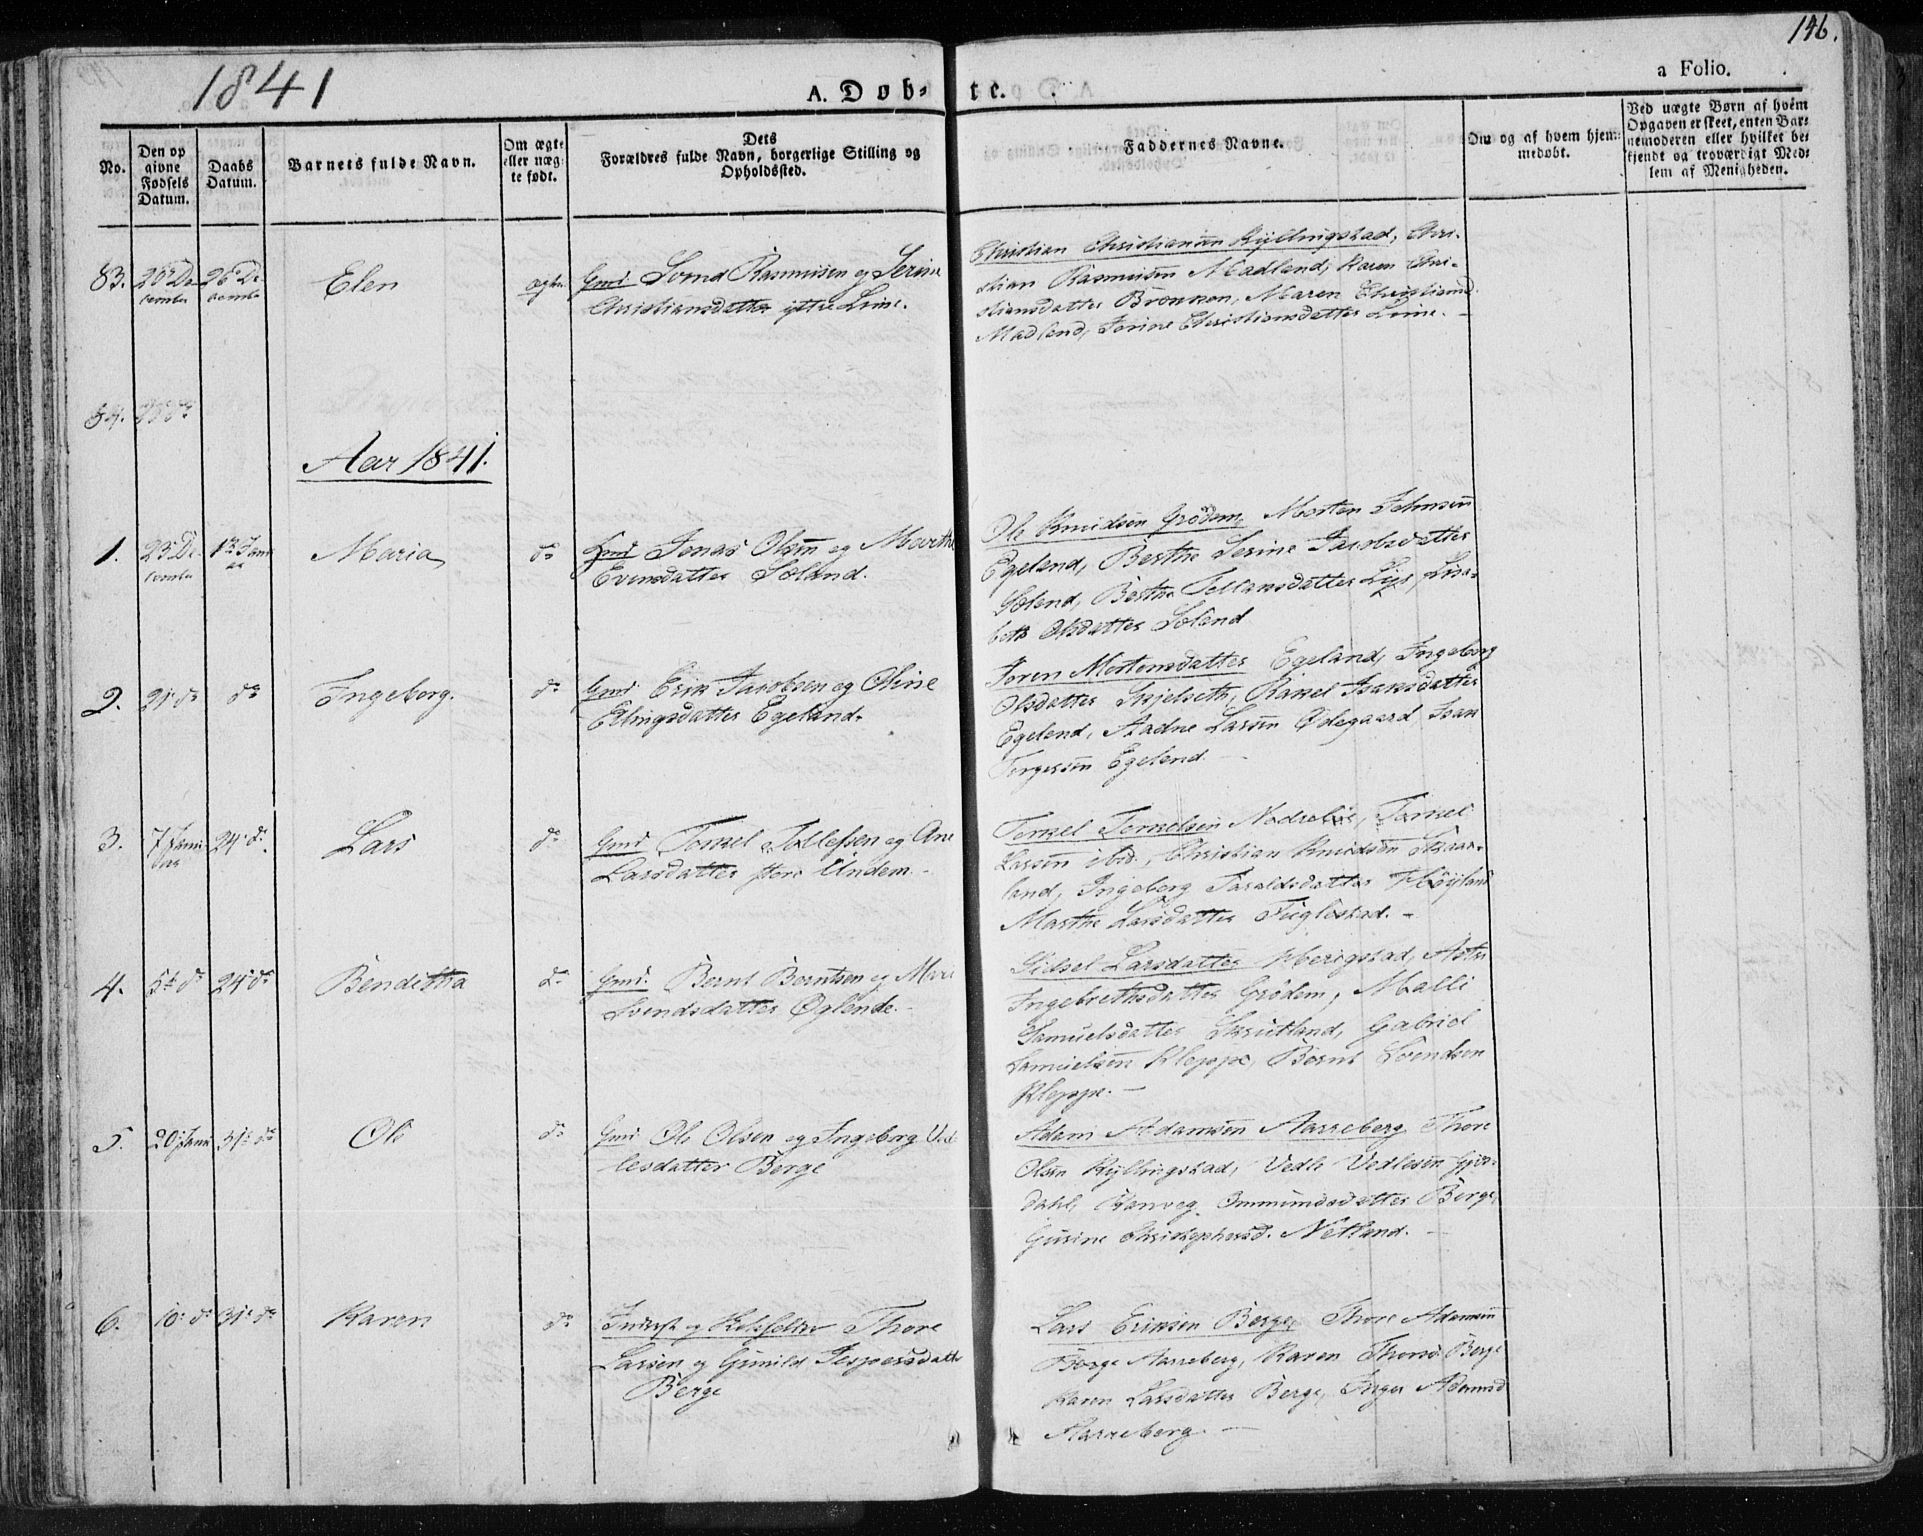 146.
1841
A. Døb-
te.
a Folio.
No.
Den op
givne
Fødsels
Datum.
Daabs
Datum.
Barnets fulde Navn.
Om ægte
eller uæg-
te født.
Dets
Forældres fulde Navn, borgerlige Stilling og
Opholdssted.
Faddernes Navne.
Om og af hvem hjem-
medøbt.
Ved uægte Børn af hvem
Opgaven er skeet, enten Bar-
nemoderen eller hvilket be-
kjendt og troværdigt Med-
lem af Menigheden.
83.
20de De
cember
26de De
cember
Elen
ægte
Gmd Svend Rasmussen og Serine
Christiansdatter yttre Lime.
Christian Christiansen Kyllingstad, Chri-
stian Rasmussen Madland, Karen Chri-
stiansdatter Bronnen, Maren Christiansd.
Madland, Serine Christiansdatter Lime. -
84.
Aar 1841.
1.
23de De
cember
1ste Janu
ar
Maria
do
Gmd Jonas Olsen og Marthe
Evensdatter Soland.
Ole Knudsen Grödem, Morten Johnsen
Egeland, Berthe Serine Jacobsdatter
Soland, Berthe Tollausdatter Lye, Lisa-
beth Olsdatter Soland
2.
21 do
do
Ingeborg.
do
Gmd Erik Jacobsen og Oline
Erlingsdatter Egeland.
Søren Mortensdatter Egeland, Ingeborg
Olsdatter Skjelseth, Rakel Isaksdatter
Egeland, Aadne Larsen Ødegaard, Isak
Torgersen Egeland. -
3.
7 Janu
ar
24 do.
Lars
do
Gmd Torkel Tollefsen og Ane
Larsdatter store Undem. -
Torkel Torkelsen Nedrebö, Torkel
Larsen ibid., Christian Knudsen Skaar-
land, Ingeborg Taraldsdatter Höyland
Marthe Larsdatter Fuglestad. -
4.
5te do
24de do
Bendikta
do
Gmd. Bernt Berntsen og Mari
Svendsdatter Oglende. -
Sidsel Larsdatter Herigstad, Astri
Ingebrethsdatter Grödem, Malli
Samuelsdatter Skrutland, Gabriel
Samuelsen Kleppe, Bernt Svendsen
Kleppe. -
5.
20 Janu
31te do
Ole
do
Gmd Ole Olsen og Ingeborg Ved-
lesdatter Berge
Adam Adamsen Aarreberg, Thore
Olsen Kyllingstad, Vedle Vedlesen Gjes-
dahl, Ranveg Ommundsdatter Berge,
Gurine Christophersd. Netland. -
6.
10 do
31te do
Karen
do
Inderst og Thore
Larsen og Gunild Jespersdatter
Berge
Lars Eriksen Berge, Thore Adamsen
Berge Aarreberg, Karen Thorsd. Berge
Karen Larsdatter Berge, Inger Adamsd
Aarreberg. -